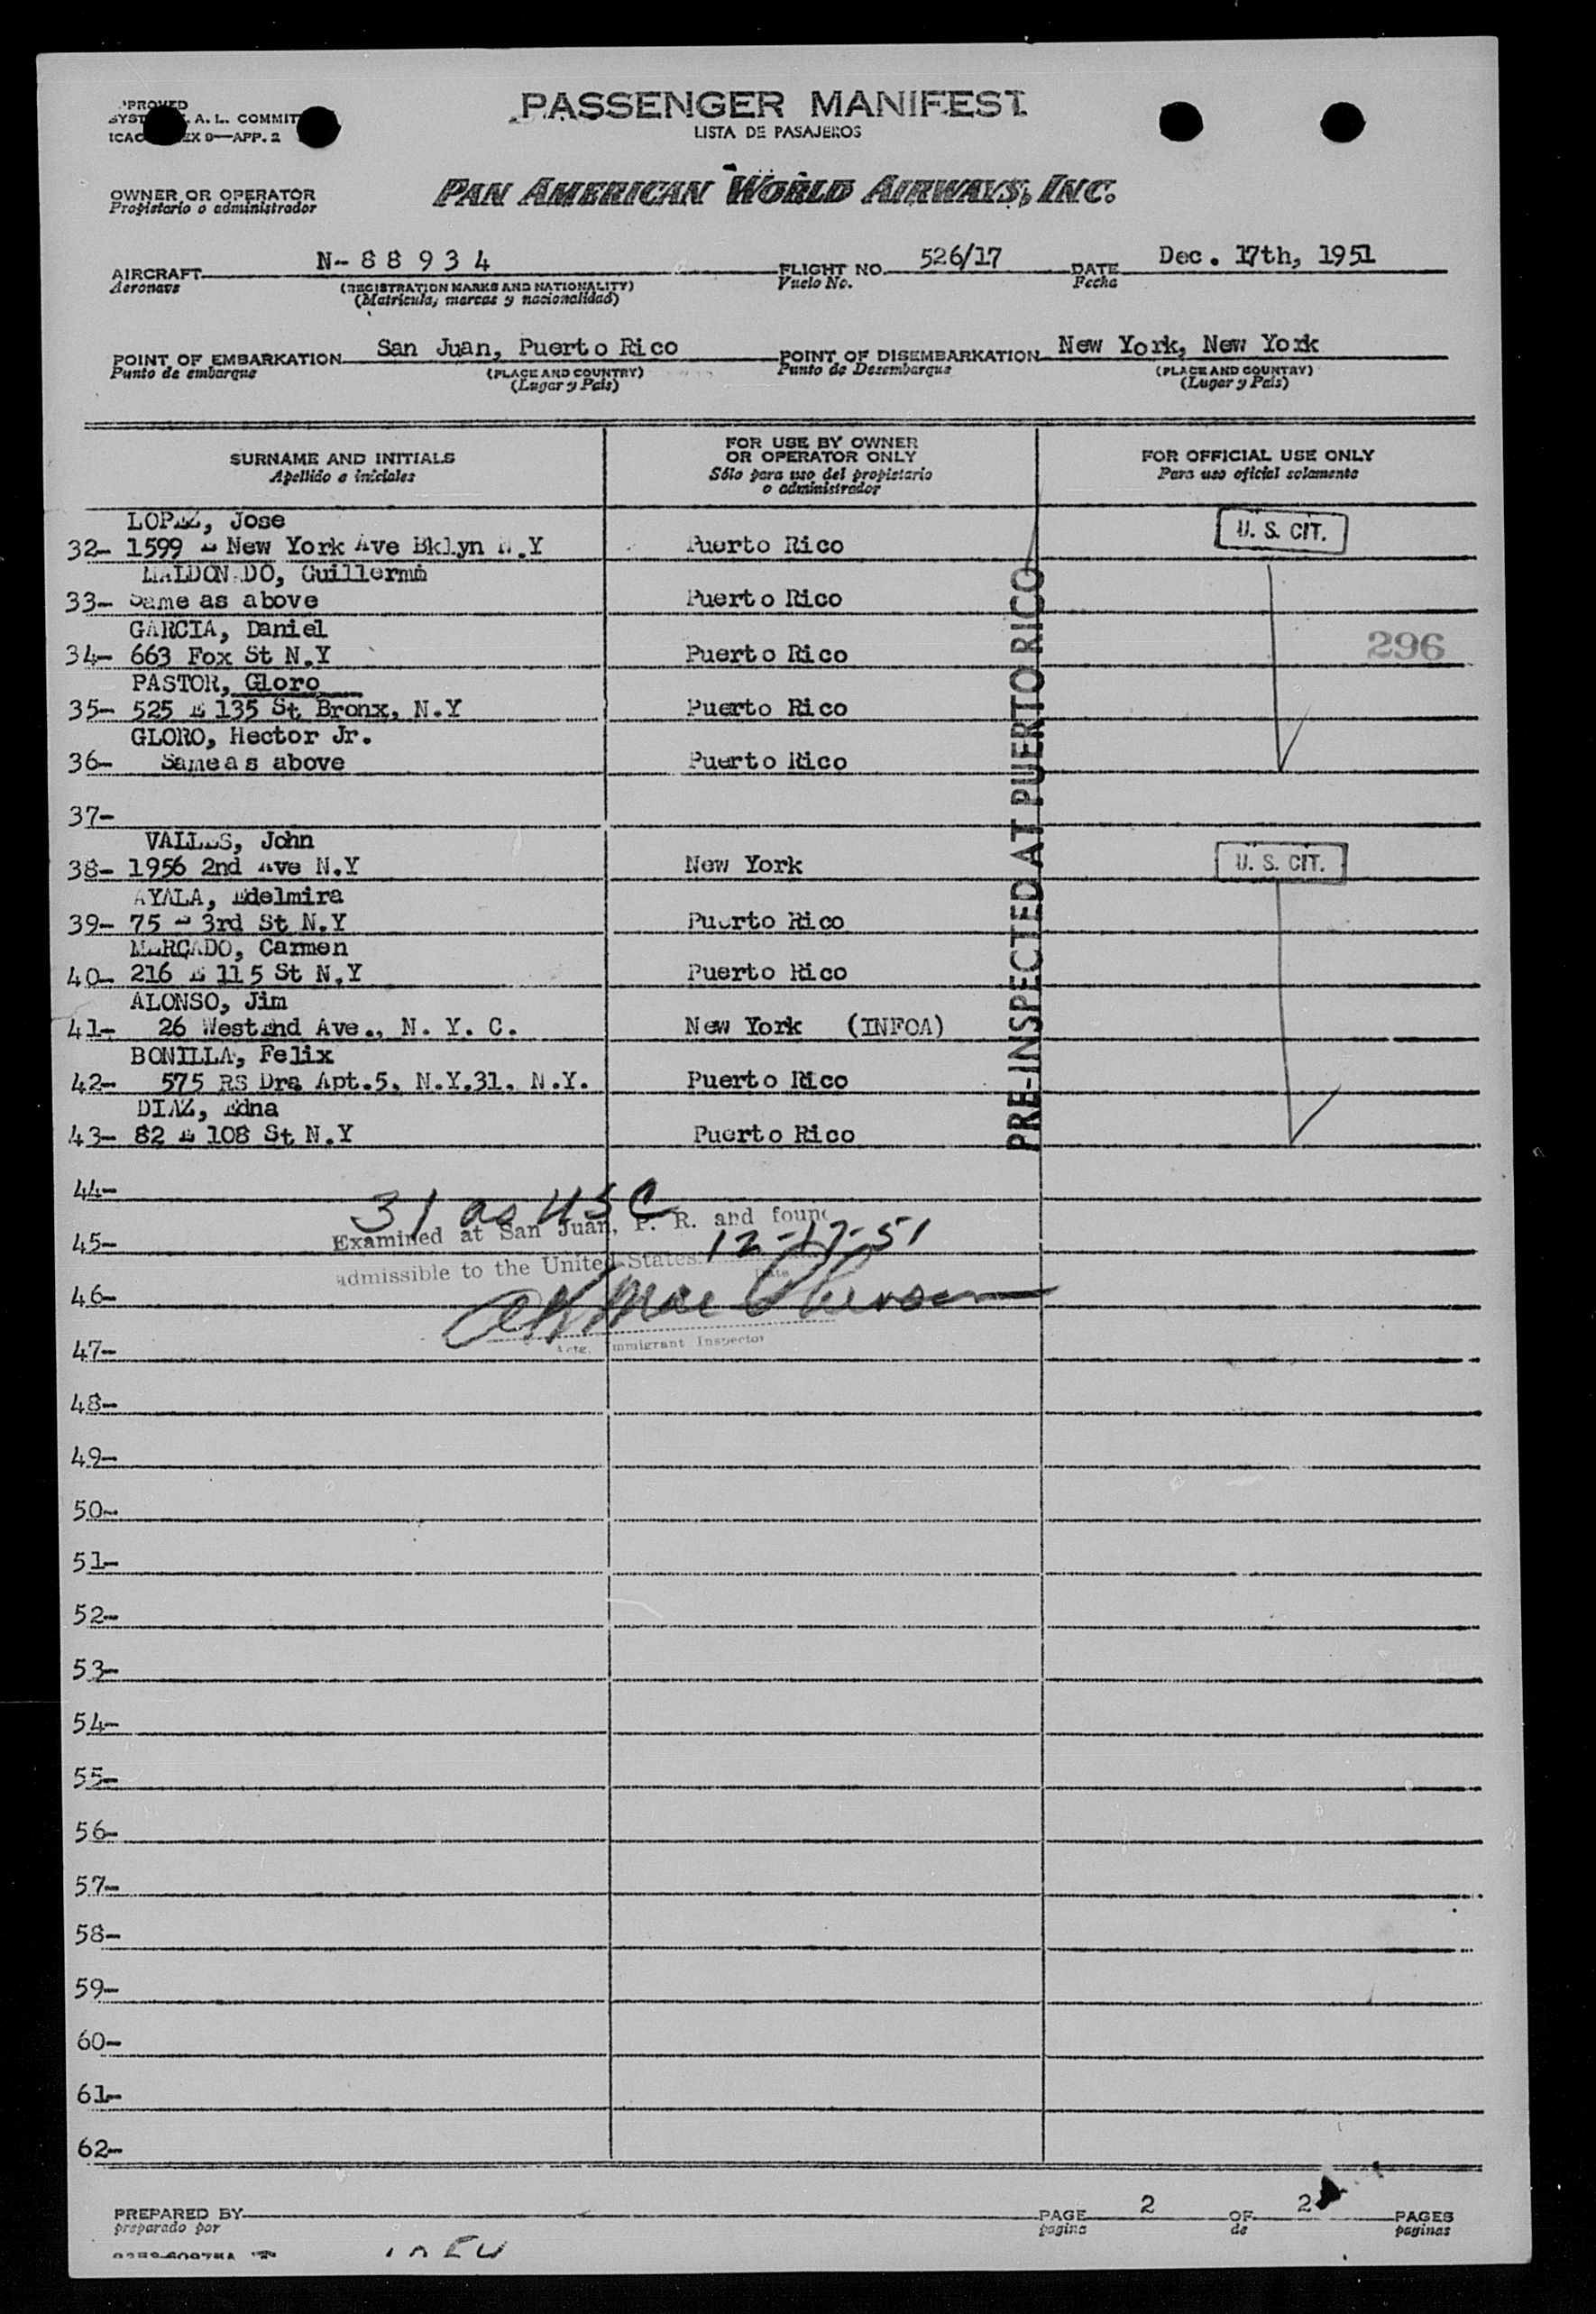 PASSENGER MANIFEST
LISTA DE PASAJEROS
A. L. COMMIT
9—APP. 2
OWNER OR OPERATOR
Propietario o administrador
PAN AMERICAN WORLD AIRWAYS, INC.
AIRCRAFT N-88934 FLIGHT NO. 526/17 DATE Dec. 17th, 1951
Aeronave (REGISTRATION MARKS AND NATIONALITY) Vuelo No. Fecha
(Matricula, marcas y nacionalidad)
POINT OF EMBARKATION San Juan, Puerto Rico POINT OF DISEMBARKATION New York, New York
Punto de embarque (PLACE AND COUNTRY) Punto de Desembarque (PLACE AND COUNTRY)
(Lugar y Pais) (Lugar y Pais)
SURNAME AND INITIALS
Apellido e iniciales
FOR USE BY OWNER
OR OPERATOR ONLY
Sólo para uso del propietario
o administrador
FOR OFFICIAL USE ONLY
Para uso oficial solamente
LOPEZ, Jose
32- 1599 E New York Ave Bklyn N.Y Puerto Rico U. S. CIT.
MALDONADO, Guillermo
33- Same as above Puerto Rico
GARCIA, Daniel
34- 663 Fox St N.Y Puerto Rico 296
PASTOR, Gloro
35- 525 E 135 St Bronx, N.Y Puerto Rico
GLORO, Hector Jr.
36- Same as above Puerto Rico
37-
VALLES, John
38- 1956 2nd Ave N.Y New York U. S. CIT.
AYALA, Edelmira
39- 75 E 3rd St N.Y Puerto Rico
MERCADO, Carmen
40- 216 E 115 St N.Y Puerto Rico
ALONSO, Jim
41- 26 West End Ave., N. Y. C. New York (INFOA)
BONILLA, Felix
42- 575 RS Dra Apt.5, N.Y.31, N.Y. Puerto Rico
DIAZ, Edna
43- 82 E 108 St N.Y Puerto Rico
PRE-INSPECTED AT PUERTO RICO
44-
31 as USC
Examined at San Juan, P. R. and found
45- 12-17-51
admissible to the United States
Date
46-
Actg. Immigrant Inspector
47-
48-
49-
50-
51-
52-
53-
54-
55-
56-
57-
58-
59-
60-
61-
62-
PREPARED BY PAGE 2 OF 2 PAGES
preparado por pagina de paginas